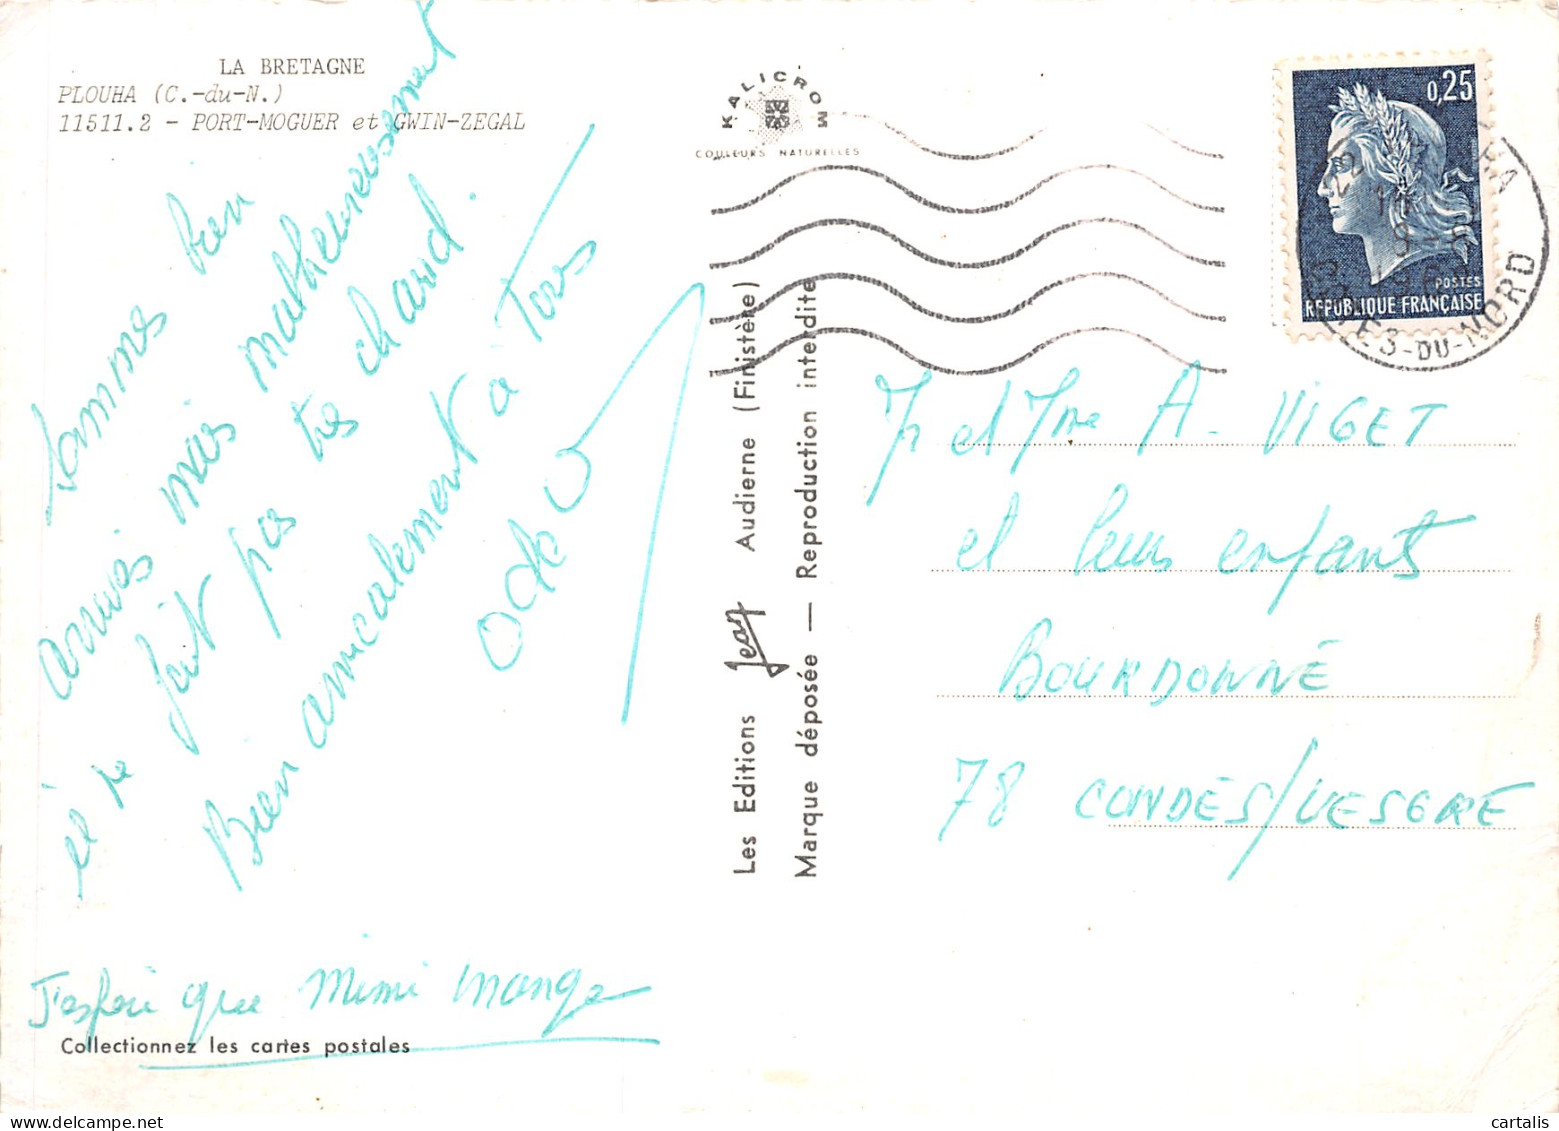 LA BRETAGNE
PLOUHA (C.-du-N.)
11511.2 - PORT-MOGUER et GWIN-ZEGAL
Sommes bien
arrivés mais malheureusement
il ne fait pas très chaud.
Bien amicalement à Tous
J'espère que Mimi mange
Collectionnez les cartes postales
KALICROM
COULEURS NATURELLES
Les Editions Jean Audierne (Finistère)
Marque déposée — Reproduction interdite
0,25
POSTES
REPUBLIQUE FRANÇAISE
22
COTES-DU-NORD
M et Mme A. VIGET
et leurs enfants
BOURDONNÉ
78 CONDES/VESGRE
cartalis